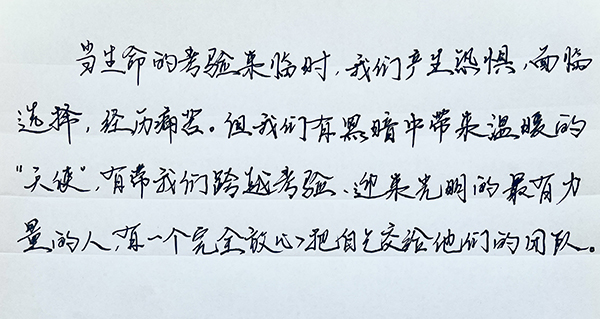 当生命的考验来临时，我们产生恐惧，面临
选择，经历痛苦。但我们有黑暗中带来温暖的
“天使”，有带我们跨越考验、迎来光明的最有力
量的人，有一个完全放心把自己交给他们的团队。